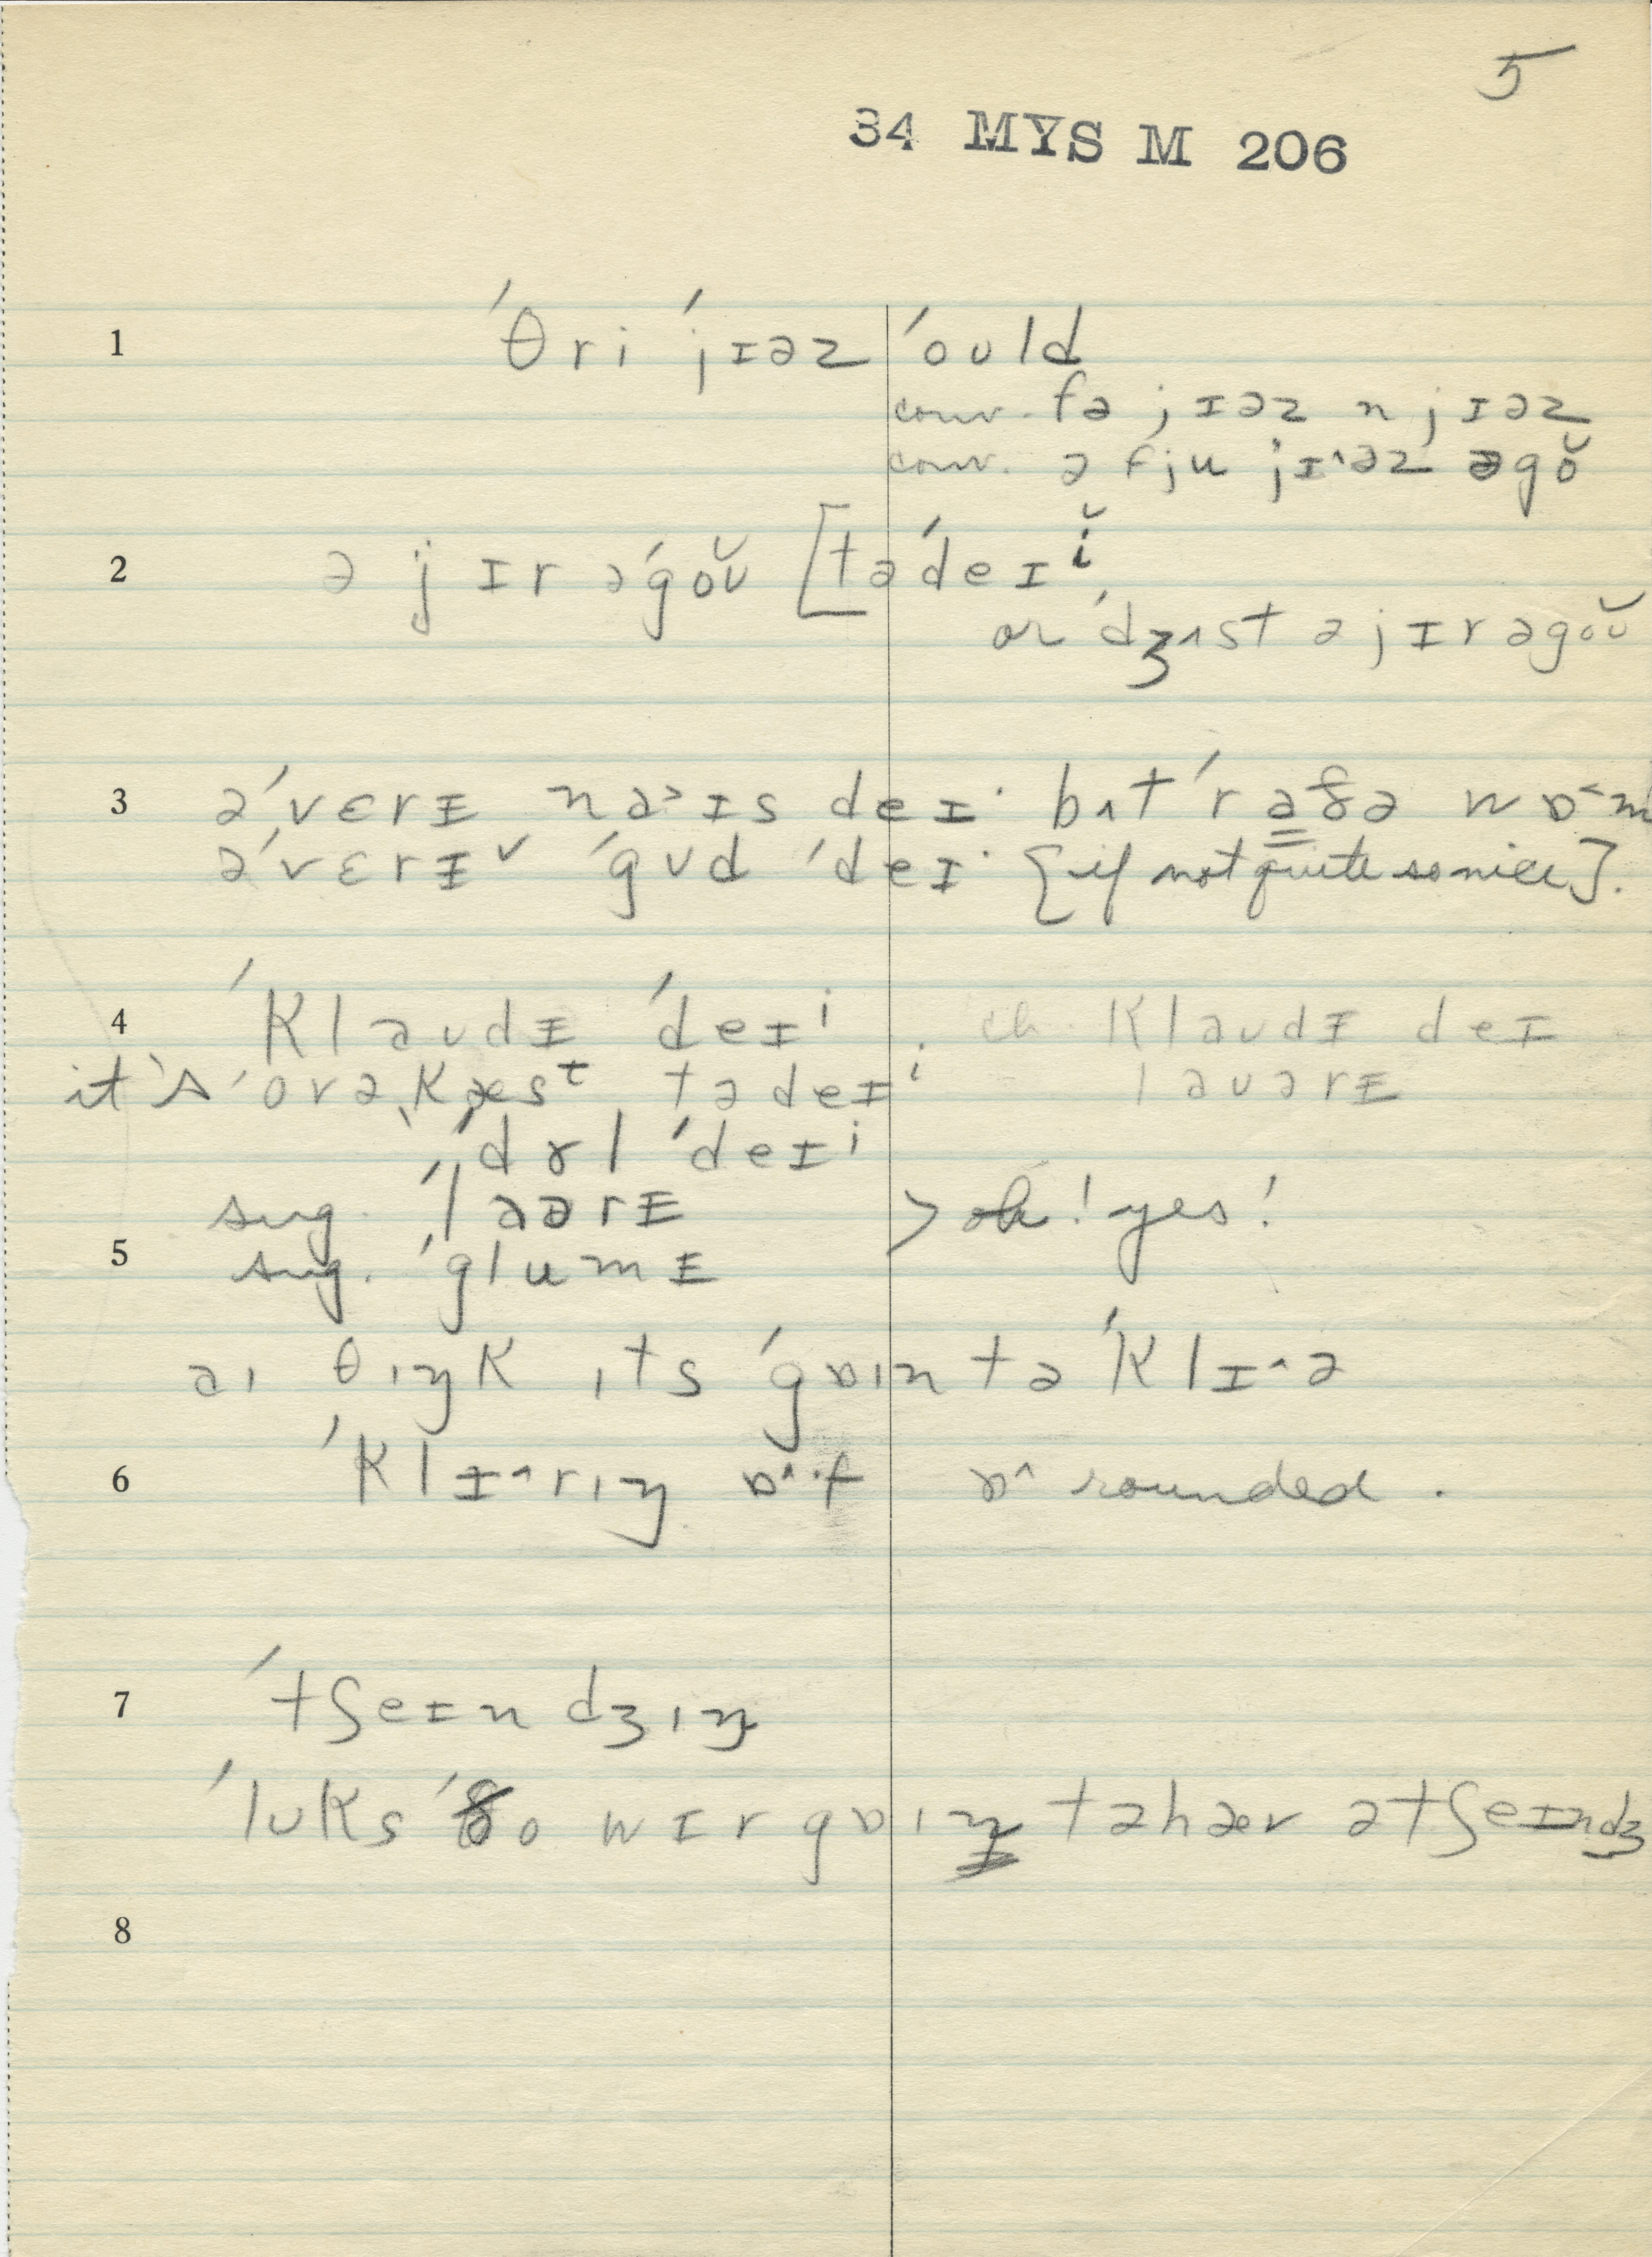 5
34 MYS M 206
1 ˈθri ˈjɪəz ˈould
conv. fə jɪəz n jɪəz
conv. ə fju jɪ^əz əgŏ
2 ə jɪr əˈgoʊ̆ [təˈdeɪǐ
or ˈdʒʌst ə jɪr əgoʊ̆
3 əˈvɛrɪ na>ɪs deɪ· bʌt ˈraðə wɒ<m
əˈvɛrɪˇ ˈgʊd ˈdeɪ· [if not quite so nice].
4 ˈklaʊdɪ ˈdeɪⁱ. ch. klaʊdɪ deɪ
it's ˈovəˌkæsᵗ tədeɪⁱ laʊərɪ
ˈdʌl ˈdeɪⁱ
sug. ˈlaərɪ > oh! yes!
5
sug. ˈglumɪ
aɪ θɪŋk ɪts ˈgɒɪn tə ˈklɪ^ə
6 ˈklɪ^rɪŋ ɒ^·f ɒ^ rounded.
7 ˈtʃeɪndʒɪŋ
ˈlʊks ˈðo wɪr gɒɪŋ tə hæv ə tʃeɪndʒ
8